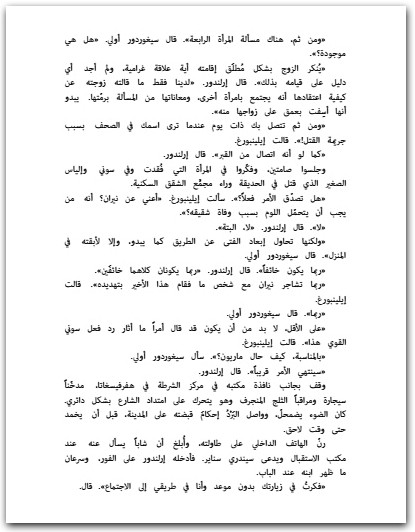 «ومن ثم، هناك مسألة المرأة الرابعة». قال سيغوردور أولي. «هل هي
موجودة؟».
«يُنكر الزوج بشكل مُطلَق إقامته أية علاقة غرامية، ولم أجد أي
دليل على قيامه بذلك». قال إرلندور. «لدينا فقط ما قالته زوجته عن
كيفية اعتقادها أنه يجتمع بامرأة أخرى، ومعاناتها من المسألة برمّتها. يبدو
أنها أسِفت بعمق على زواجها منه».
«ومن ثم تتصل بك ذات يوم عندما ترى اسمك في الصحف بسبب
جريمة القتل!». قالت إيلينبورغ.
«كما لو أنه اتصال من القبر». قال إرلندور.
وجلسوا صامتين، وفكّروا في المرأة التي فُقدت وفي سوني وإلياس
الصغير الذي قتل في الحديقة وراء مجمَّع الشقق السكنية.
«هل تصدّق الأمر فعلاً؟». سألت إيلينبورغ. «أعني عن نيران؟ أنه من
يجب أن يتحمّل اللوم بسبب وفاة شقيقه؟».
«لا». قال إرلندور. «لا، البتة».
«ولكنها تحاول إبعاد الفتى عن الطريق كما يبدو، وإلا لأبقته في
المنزل». قال سيغوردور أولي.
«ربما يكون خائفاً». قال إرلندور. «ربما يكونان كلاهما خائفَين».
«ربما تشاجر نيران مع شخص ما فقام هذا الأخير بتهديده». قالت
إيلينبورغ.
«ربما». قال سيغوردور أولي.
«على الأقل، لا بد من أن يكون قد قال أمراً ما أثار رد فعل سوني
القوي هذا». قالت إيلينبورغ.
«بالمناسبة، كيف حال ماريون؟». سأل سيغوردور أولي.
«سينتهي الأمر قريباً». قال إرلندور.
وقف بجانب نافذة مكتبه في مركز الشرطة في هفرفيسغاتا، مدخّناً
سيجارة ومراقباً الثلج المنجرف وهو يتحرك على امتداد الشارع بشكل دائري.
كان الضوء يضمحلّ، وواصل البَرْدُ إحكامَ قبضته على المدينة، قبل أن يخمد
حتى وقت لاحق.
رنّ الهاتف الداخلي على طاولته، وأُبلغ أن شاباً يسأل عنه عند
مكتب الاستقبال ويدعى سيندري سناير. فأدخله إرلندور على الفور، وسرعان
ما ظهر ابنه عند الباب.
«فكرتُ في زيارتك بدون موعد وأنا في طريقي إلى الاجتماع». قال.